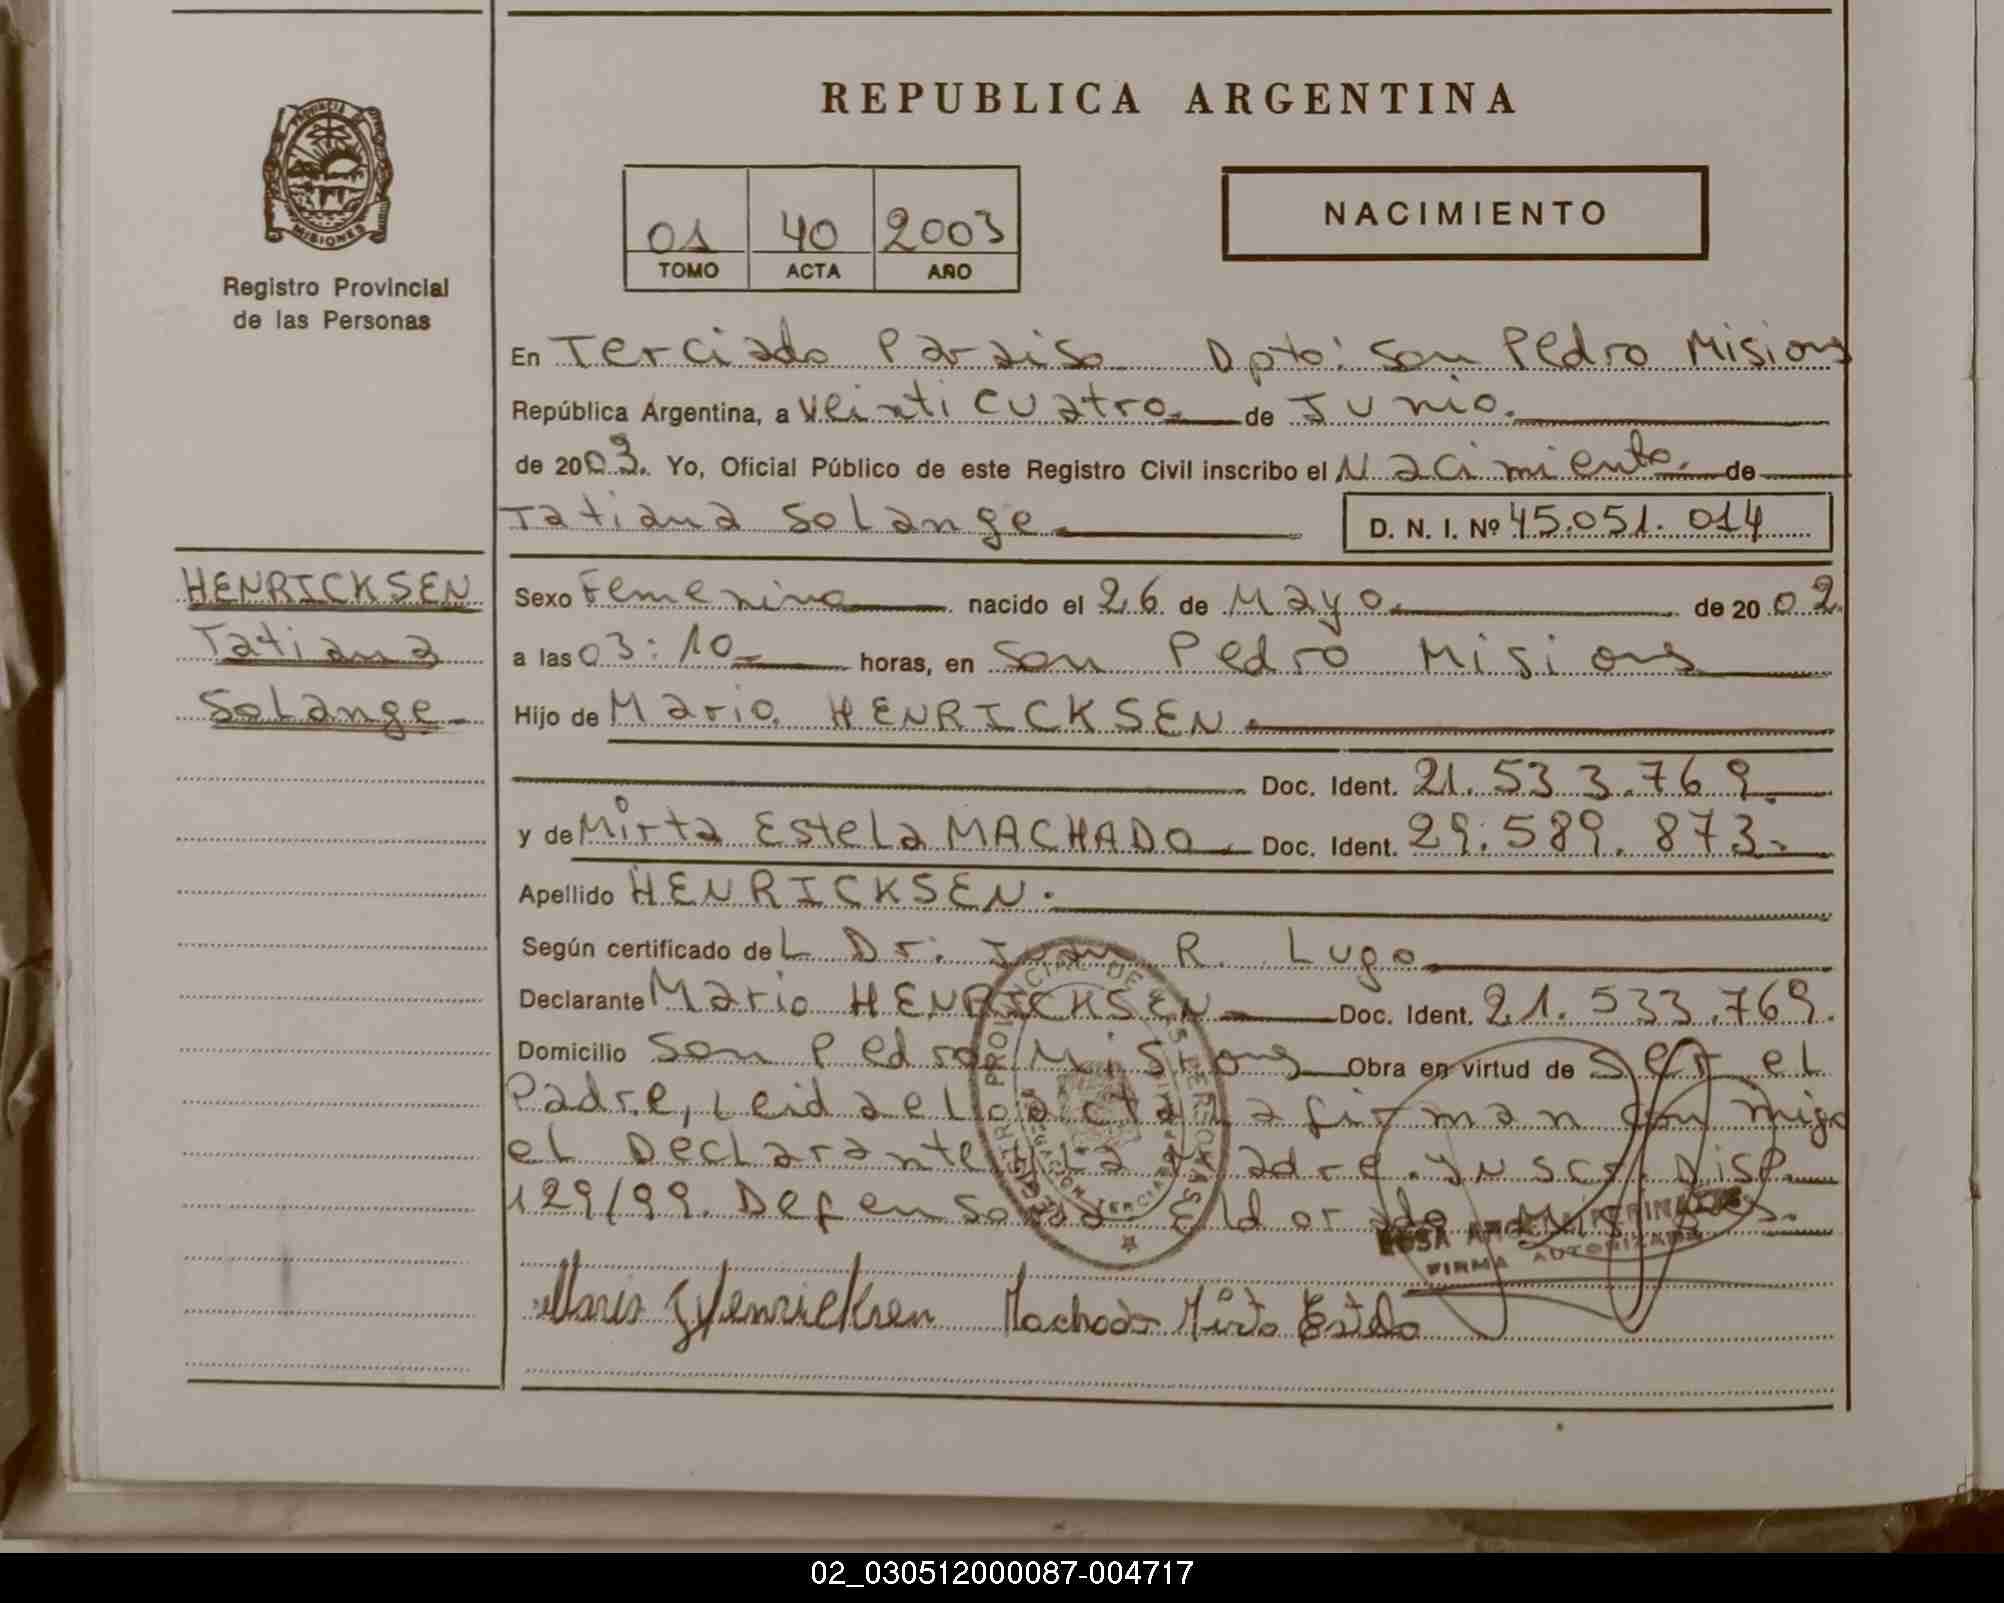 REPUBLICA ARGENTINA
PROVINCIA DE
MISIONES
Registro Provincial
de las Personas
01 40 2003
TOMO ACTA AÑO
NACIMIENTO
En Terciado Paraiso Dpto: San Pedro Misiones
República Argentina, a Veinticuatro de Junio.
de 2003. Yo, Oficial Público de este Registro Civil inscribo el Nacimiento. de
Tatiana Solange.
D. N. I. Nº 45.051.014
HENRICKSEN
Tatiana
Solange
Sexo Femenino nacido el 26 de Mayo. de 2002.
a las 03:10 horas, en San Pedro Misiones
Hijo de Mario HENRICKSEN.
Doc. Ident. 21.533.769.
y de Mirta Estela MACHADO. Doc. Ident. 29.589.873.
Apellido HENRICKSEN.
Según certificado deL Dr. Juan R. Lugo
Declarante Mario HENRICKSEN Doc. Ident. 21.533.769.
Domicilio San Pedro Misiones Obra en virtud de Ser el
Padre, Leida el acta la firman conmigo
el Declarante y La Madre. Disp.
129/99. Defensoria Eldorado Misiones.
FIRMA AUTORIZADA
Mario Henricksen Machado Mirta Estela
02_030512000087-004717